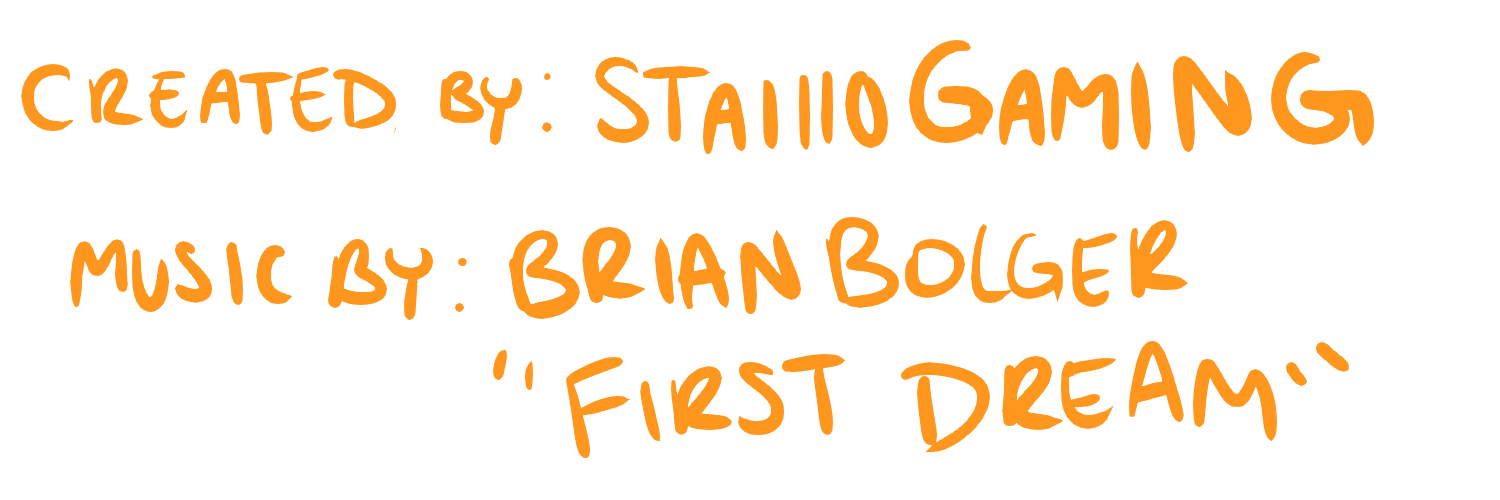 CREATED BY: STA1110GAMING
MUSIC BY: BRIAN BOLGER
"FIRST DREAM"